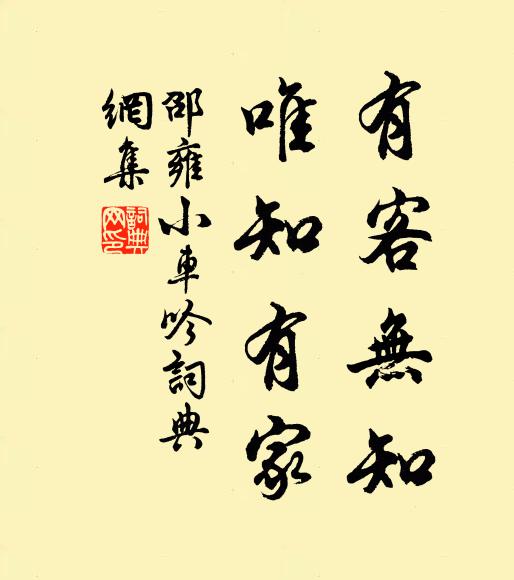 有客無知
唯知有家
邵雍小車吟詞典
網集
詞典
网印